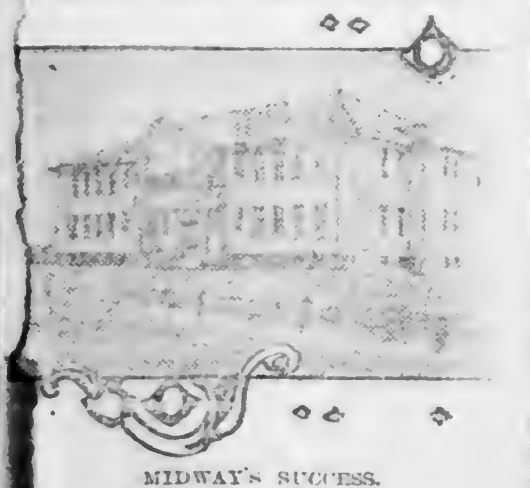 MIDWAY'S SUCCESS.